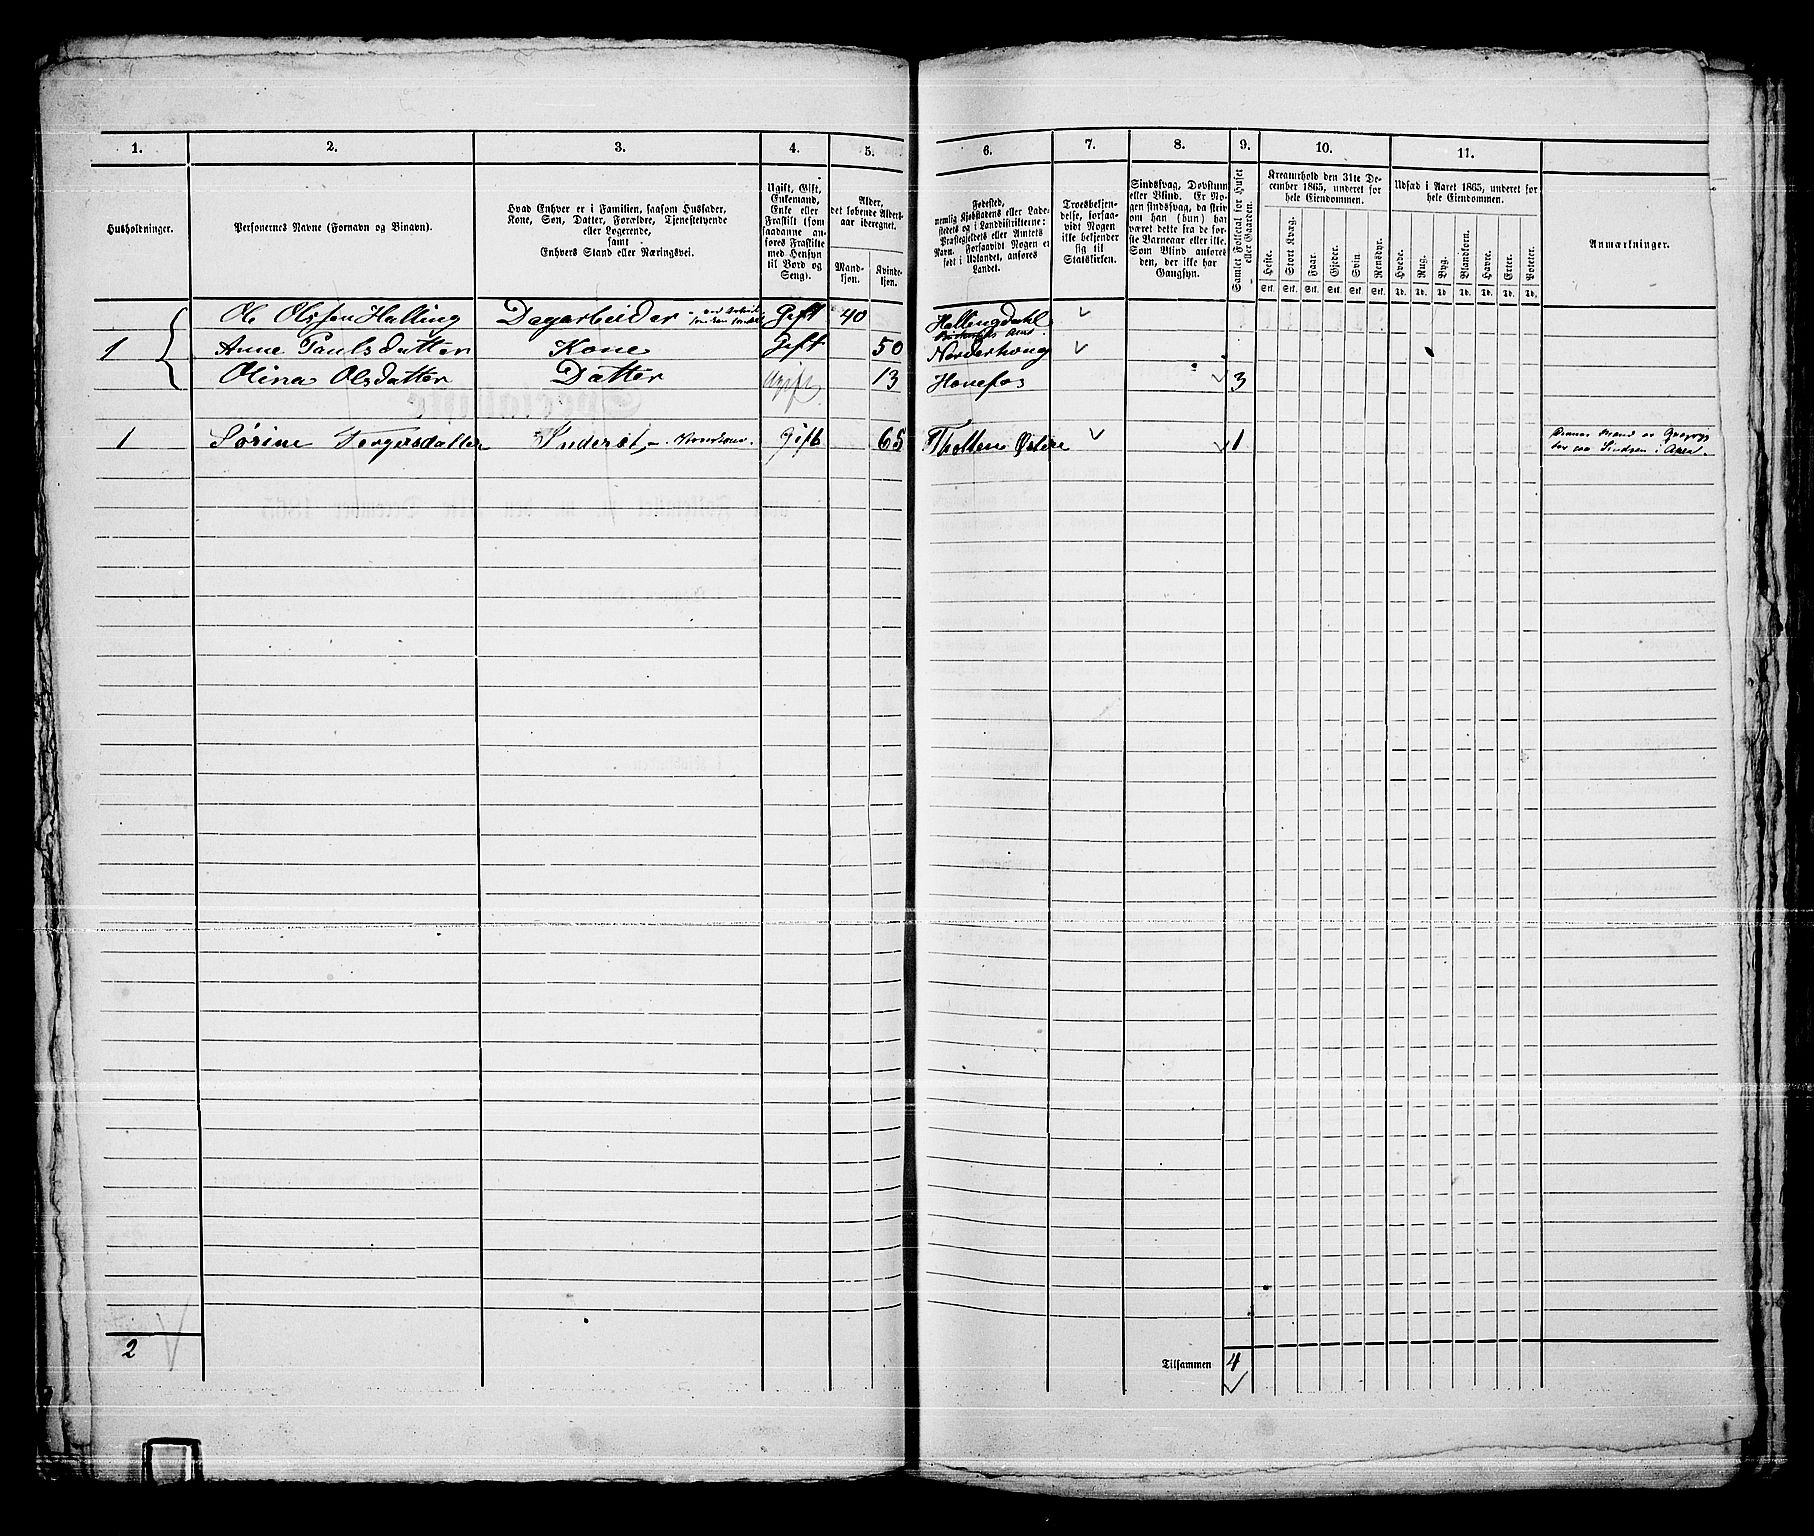 1.
2.
3.
4.
5.
6.
7.
8.
9.
10.
11.
Husholdninger.
Personernes Navne (Fornavn og Binavn).
Hvad Enhver er i Familien, saasom Husfader,
Kone, Søn, Datter, Forældre, Tjenestetyende
eller Logerende,
samt
Enhvers Stand eller Næringsvei.
Ugift, Gift,
Enkemand,
Enke eller
Fraskilt (som
saadanne an-
føres Fraskilte
med Hensyn
til Bord og
Seng).
Alder,
det løbende Alders-
aar iberegnet.
Mand-
kjøn.
Kvinde-
kjøn.
Fødested,
nemlig Kjøbstadens eller Lade-
stedets og i Landdistrikterne:
Præstegjeldets eller Amtets
Navn. Forsaavidt Nogen er
født i Udlandet, anføres
Landet.
Troesbekjen-
delse, forsaa-
vidt Nogen
ikke bekjender
sig til
Statskirken.
Sindssvag, Døvstum
eller Blind. Er No-
gen sindssvag, da skriv
om han (hun) har
været dette fra de før-
ste Barneaar eller ikke.
Som Blind anføres
den, der ikke har
Gangsyn.
Samlet Folketal for Huset
eller Gaarden.
Kreaturhold den 31te De-
cember 1865, underet for
hele Eiendommen.
Heste.
Stort Kvæg.
Faar.
Gjeder.
Svin.
Rensdyr.
Stk. Stk. Stk. Stk. Stk. Stk.
Udsæd i Aaret 1865, underet for
hele Eiendommen.
Hvede.
Rug.
Byg.
Blandkorn.
Havre.
Erter.
Poteter.
Td. Td. Td. Td. Td. Td. Td.
Anmærkninger.
Ole Olssen Halling Dagarbeider Gift 40 Hallingdahl
1 Anne Paulsdatter Kone Gift 50 Norderhoug
Olina Olsdatter Datter Ugift 13 Hønefos 3
1 Sørine Torgersdatter Inderst Gift 65 Thotten Østre 1 Dennes Mand er
i
2
Tilsammen 4